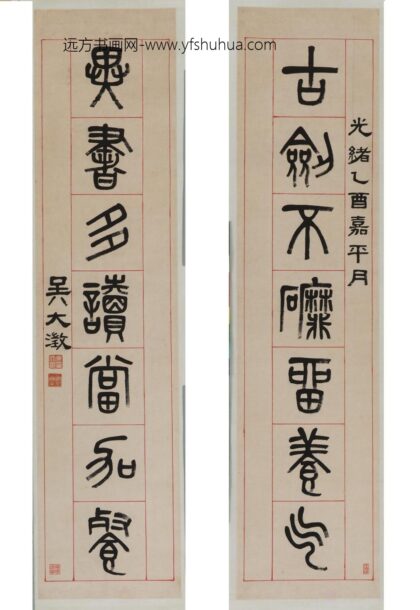 远方书画网-www.yfshuhua.com
光緒乙酉嘉平月
古劍不磨留養气
異書多讀當加餐
吳大澂